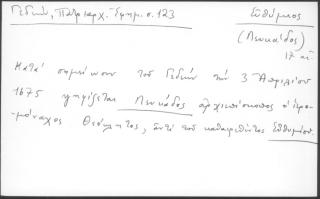 Γεδεών, Πατριαρχ. Ἐφημ. σ. 123
Εὐθύμιος
(Λευκάδος)
17 αἰ.
Κατά σημείωσιν τοῦ Γεδεών τήν 3 Ἀπριλίου
1675 ψηφίζεται Λευκάδος ἀρχιεπίσκοπος ὁ ἱερο-
μόναχος Θεόκλητος, ἀντί τοῦ καθαιρεθέντος Εὐθυμίου.